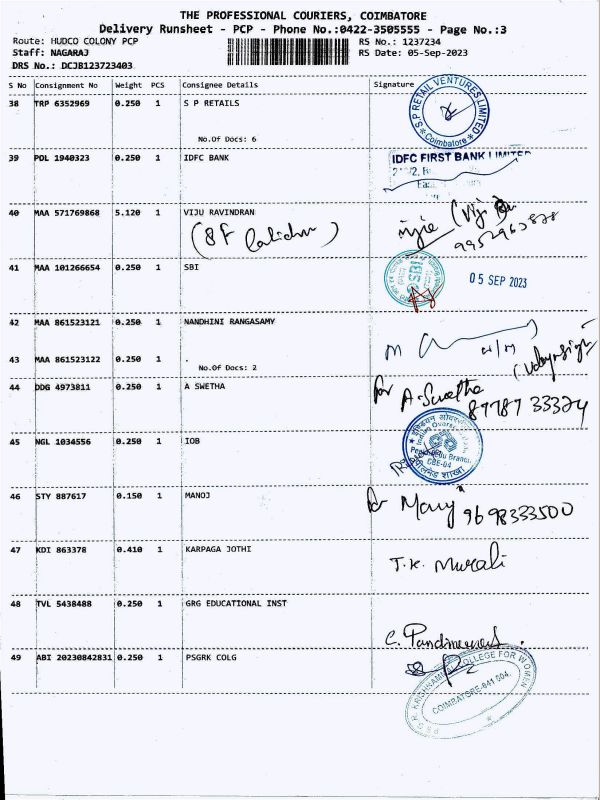 THE PROFESSIONAL COURIERS, COIMBATORE
Delivery Runsheet - PCP - Phone No.:0422-3505555 - Page No.:3
Route: HUDCO COLONY PCP
RS No.: 1237234
Staff: NAGARAJ
RS Date: 05-Sep-2023
DRS No.: DCJB123723403
S No Consignment No Weight PCS Consignee Details Signature
38 TRP 6352969 0.250 1 S P RETAILS
No.Of Docs: 6
S P RETAIL VENTURES LIMITED
Coimbatore
39 POL 1940323 0.250 1 IDFC BANK
IDFC FIRST BANK LIMITED
40 MAA 571769868 5.120 1 VIJU RAVINDRAN
(8F
41 MAA 101266654 0.250 1 SBI
SBI
05 SEP 2023
42 MAA 861523121 0.250 1 NANDHINI RANGASAMY
43 MAA 861523122 0.250 1 .
No.Of Docs: 2
44 DDG 4973811 0.250 1 A SWETHA
for A.Swetha
87787 33324
45 NGL 1034556 0.250 1 IOB
Branch
CBE-04
46 STY 887617 0.150 1 MANOJ
9698333500
47 KDI 863378 0.410 1 KARPAGA JOTHI
T.K. Murali
48 TVL 5438488 0.250 1 GRG EDUCATIONAL INST
49 ABI 20230842831 0.250 1 PSGRK COLG
P S G R. KRISHNAMMAL COLLEGE FOR WOMEN
COIMBATORE-641 004.